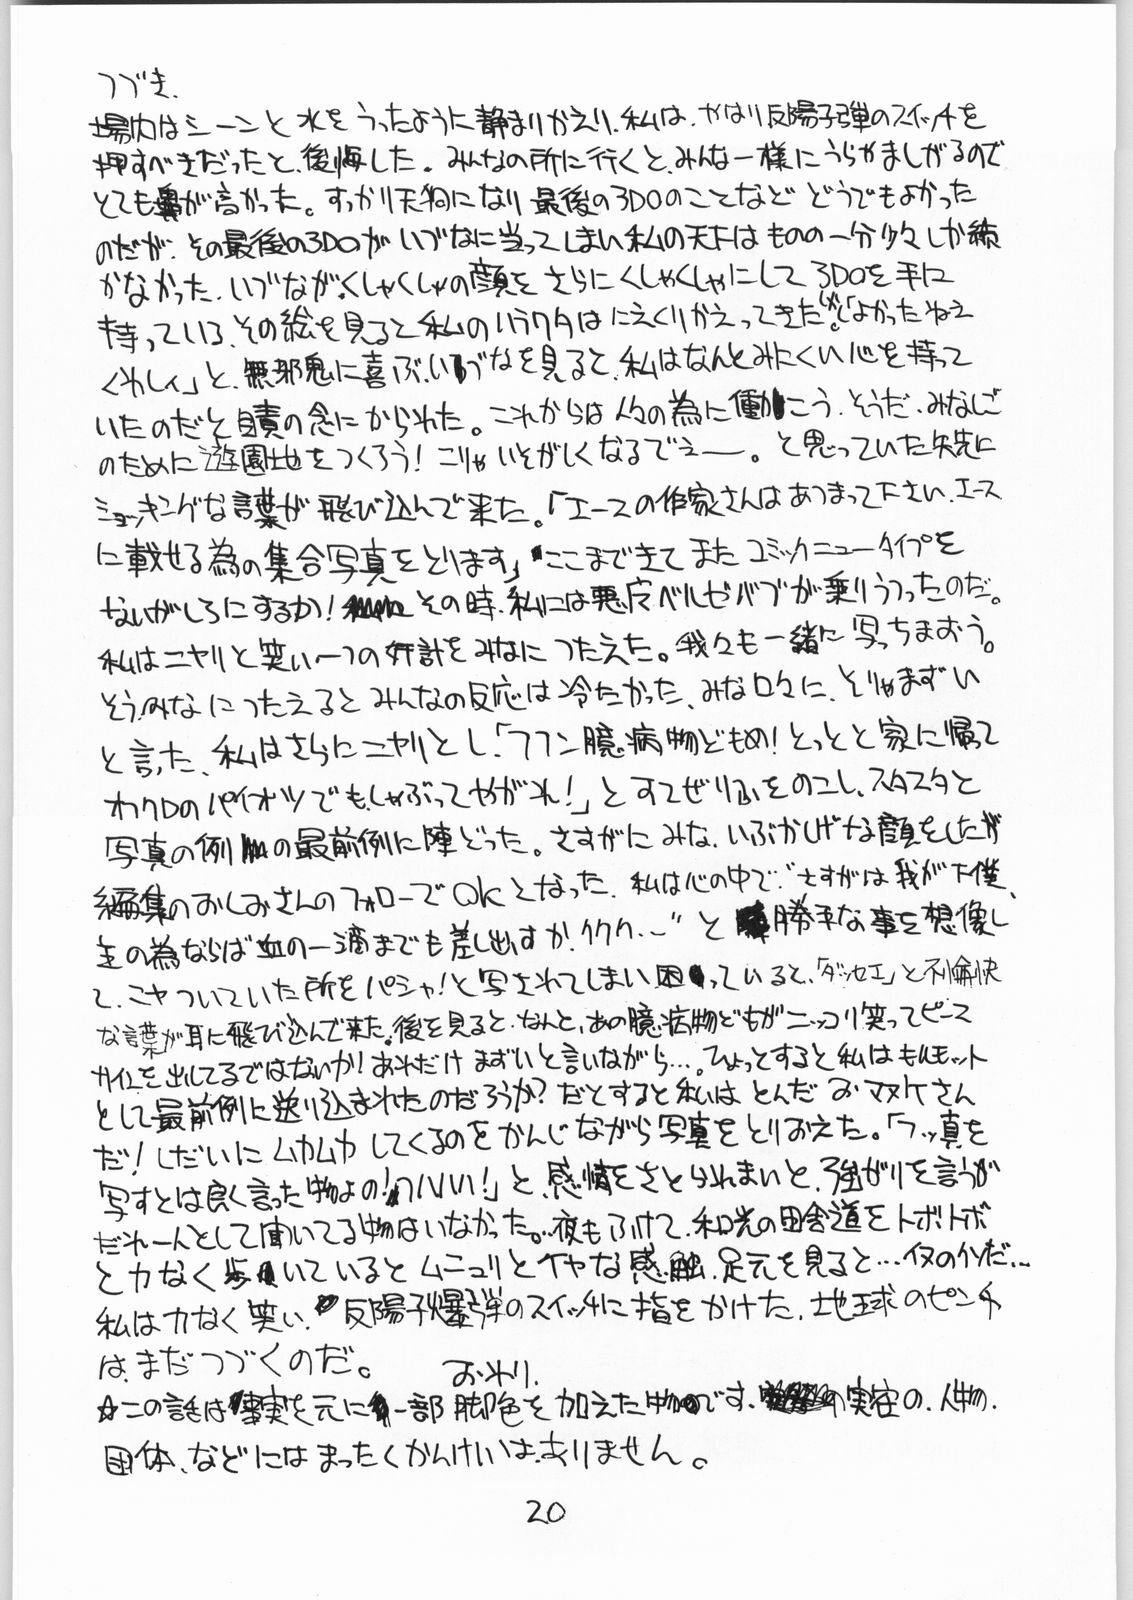 つづき.
場内はシーンと水をうったように静まりかえり、私は、やはり反陽子弾のスイッチを
押すべきだったと、後悔した。みんなの所に行くと、みんな一様にうらやましがるので
とても鼻が高かった。すっかり天狗になり最後の3DOのことなどどうでもよかった
のだが、その最後の3DOがいづなに当ってしまい私の天下はものの一分少々しか続
かなかった、いづながくしゃくしゃの顔をさらにくしゃくしゃにして3DOを手に
持っている、その絵を見ると私のハラワタはにえくりかえってきたが「よかったねェ
くわしィ」と、無邪鬼に喜ぶ、いづなを見ると、私はなんとみにくい心を持って
いたのだと自責の念にかられた。これからは人々の為に働こう、そうだ、みなしご
のために遊園地をつくろう！こりゃいそがしくなるでェー。と思っていた矢先に
ショッキングな言葉が飛び込んで来た。「エースの作家さんはあつまって下さい、エース
に載せる為の集合写真をとります」ここまできてまたコミックニュータイプを
ないがしろにするか！その時、私には悪魔ベルゼバブが乗りうつったのだ。
私はニヤリと笑い一つの奸計をみなにつたえた。我々も一緒に写っちまおう。
そうみなにつたえるとみんなの反応は冷たかった、みな口々に、そりゃまずい
と言った、私はさらにニヤリとし、「フフン臆病物どもめ！とっとと家に帰って
オカクロのパイオツでもしゃぶってやがれ！」とすてぜりふをのこし、スタスタと
写真の例の最前例に陣どった。さすがにみな、いぶかしげな顔をしたが
編集のおしおさんのフォローでOKとなった、私は心の中で"さすがは我が下僕、
主の為ならば血の一滴までも差し出すか、ククク…"と勝手な事を想像し
て、ニヤついていた所をパシャ！と写されてしまい困っていると、「ダッセエ」と不愉快
な言葉が耳に飛び込んで来た。後を見ると、なんと、あの臆病物どもがニッコリ笑ってピース
サインを出してるではないか！あれだけまずいと言いながら…。ひょっとすると私はもルモット
として最前例に送り込まれたのだろうか？だとすると私はとんだおマヌケさん
だ！しだいにムカムカしてくるのをかんじながら写真をとりおえた。「フッ真を
写すとは良く言った物よの！ハハハ！」と、感情をさとられまいと、強がりを言うが
だれ一人として聞いてる物はいなかった。夜もふけて、和光の田舎道をトボトボ
と力なく歩いているとムニュリとイヤな感触、足元を見ると…イヌのクソだ…
私は力なく笑い、反陽子爆弾のスイッチに指をかけた、地球のピンチ
は、まだつづくのだ。
おわり.
☆この話は事実を元に一部脚色を加えた物です、実在の、人物、
団体、などにはまったくかんけいはありません。
20